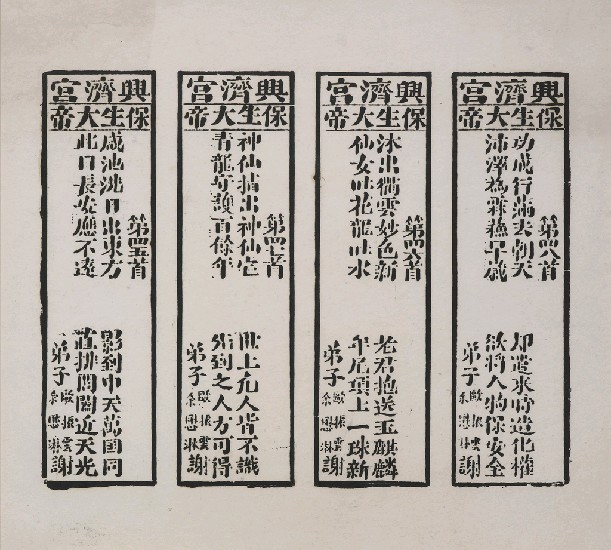 興濟宮
保生大帝
第四八首
功成行滿去朝天
却遣來時造化權
沛澤為霖蘇旱歲
欲將人物保安全
弟子
歐振雲
余懋淋
謝
興濟宮
保生大帝
第四六首
沐出衢雲妙色新
老君抱送玉麒麟
仙女吐花龍吐水
牟尼頂上一珠新
弟子
歐振雲
余懋淋
謝
興濟宮
保生大帝
第四七首
神仙指出神仙宅
世上凡人皆不識
青龍守護百餘年
福到之人方可得
弟子
歐振雲
余懋淋
謝
興濟宮
保生大帝
第四五首
咸池洗日出東方
影到中天萬國同
此日長安應不遠
直排閶闔近天光
弟子
歐振雲
余懋淋
謝